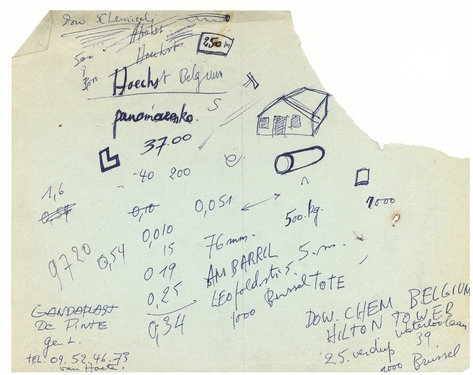 Dow. Chemical
Hoechst
250 m
Hoechst Belgium
panamarenko.
S
37.00
40 200
1,6
0,10
0,051
500.kg.
1000
0,010
9720
0,54
15
76 mm.
0 19
AMBARRIL
0,25
LEOPOLDSTR 5.
1000 Brussel TOTE
0,34
GANDAPLAST
De PINTE
TEL: 09.52.46.73
van Haete.
DOW. CHEM BELGIUM
HILTON TOWER
waterloolaan
39
25. verdiep
1000 Brussel